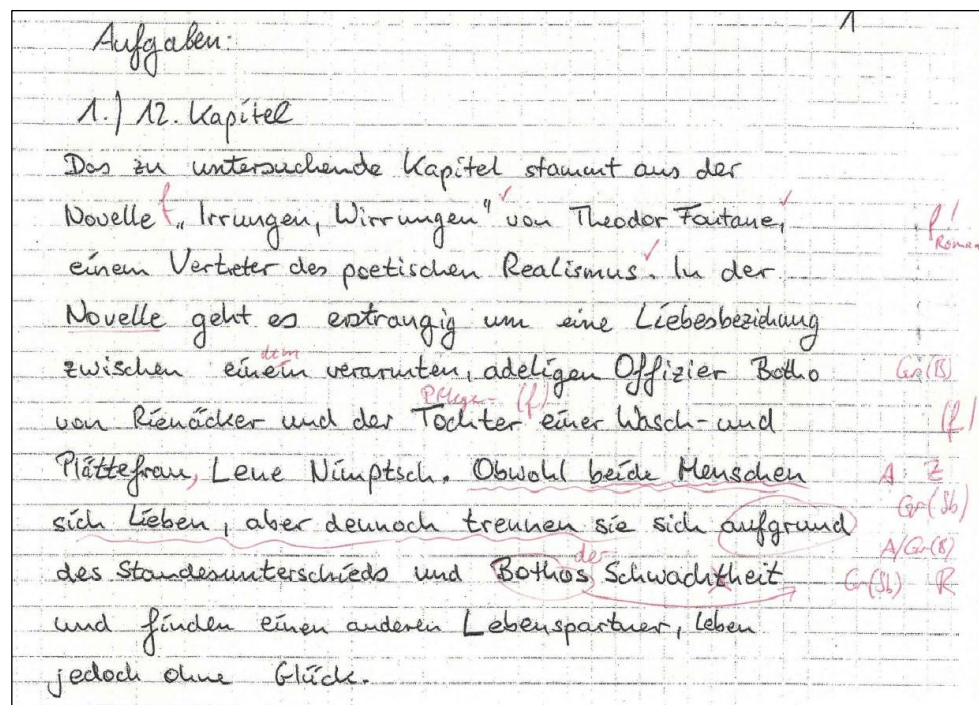 1
Aufgaben:
1.) 12. Kapitel
Das zu untersuchende Kapitel stammt aus der
Novelle f „Irrungen, Wirrungen" ✓ von Theodor Fontane, ✓
f! Roman
einem Vertreter des poetischen Realismus ✓. In der
Novelle geht es erstrangig um eine Liebesbeziehung
dem
zwischen einem verarmten, adeligen Offizier Botho Gr(B)
Pflege- (f)
von Rienäcker und der Tochter einer Wasch- und (f)
Plättefrau, Lene Nimptsch. Obwohl beide Menschen A Z
sich Lieben, aber dennoch trennen sie sich aufgrund Gr(Sb)
der A/Gr(B)
des Standesunterschieds und Bothos Schwachtheit Gr(Sb) R
und finden einen anderen Lebenspartner, leben
jedoch ohne Glück.